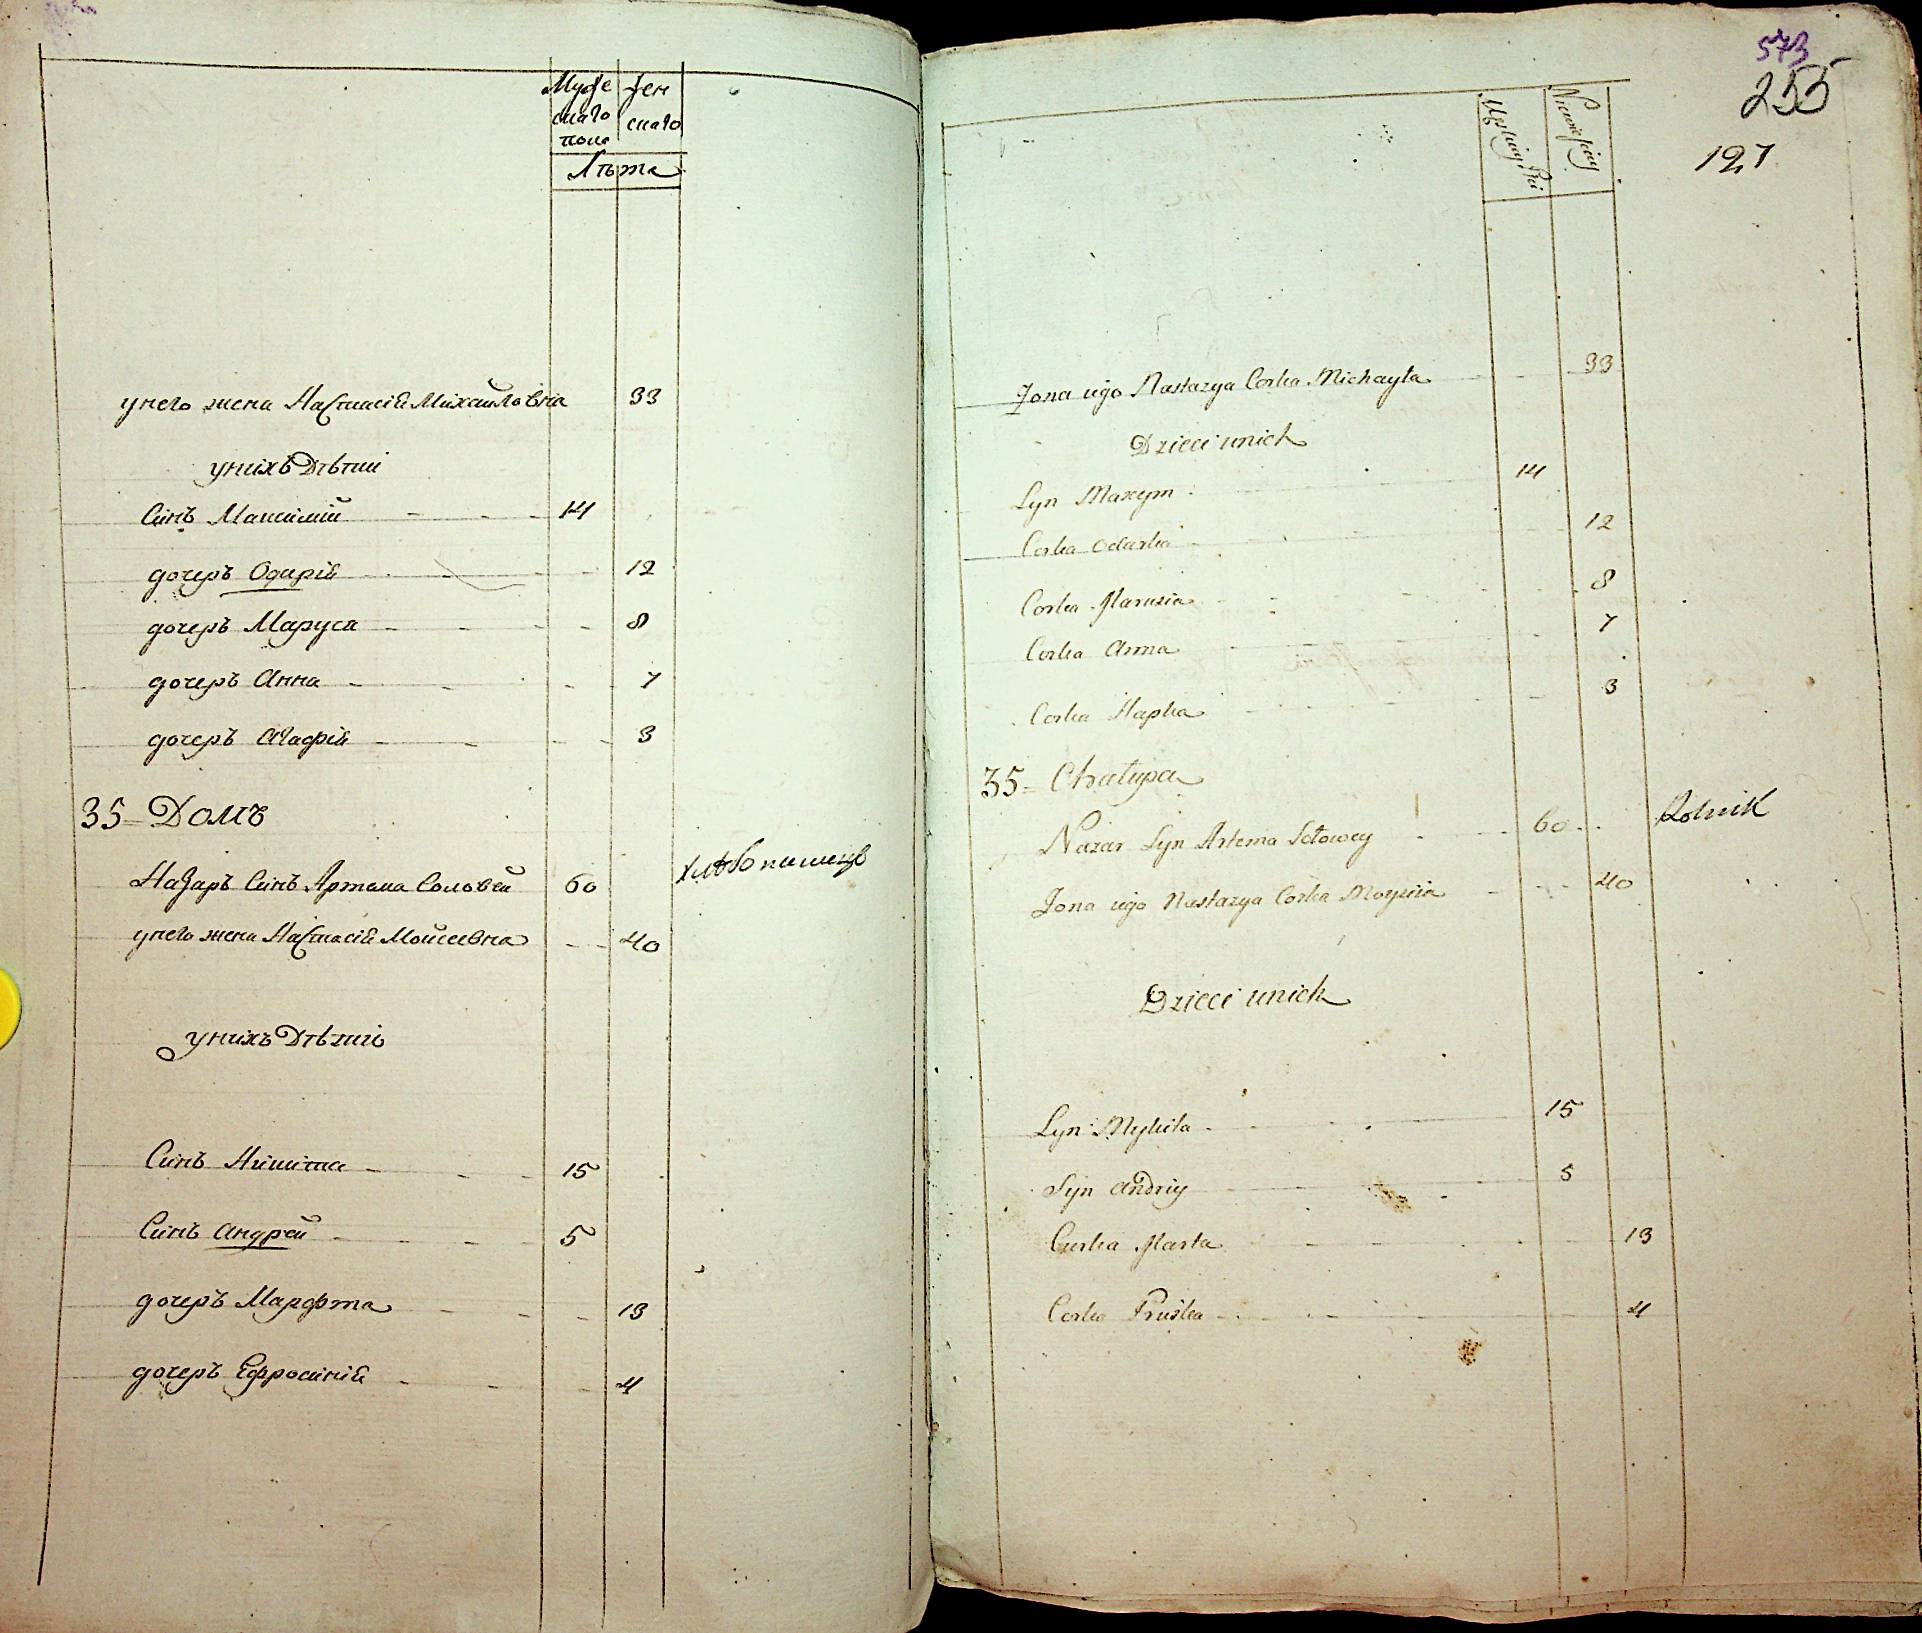 Муже жен
скаго скаго
пола
Лѣта
унего жена Настасія Михайловна 33
унихъ Дѣтии
Синъ Максимій 14
дочеръ Одарія 12
дочеръ Маруся 8
дочеръ Анна 7
дочеръ Агафія 3
35 = Домъ
Назаръ Синъ Артема Соловей 60 хлѣбопашецъ
унего жена Настасія Мойсеевна 40
унихъ Дѣтиі
Синъ Никита 15
Синъ Андрей 5
дочеръ Марфта 13
дочеръ Ефросинія 4
573
255
127
Męskiey Płci Niewieściey
Żona iego Nastazya Corka Michayła 33
Dzieci unich
Syn Maxym 14
Corka Odarka 12
Corka Marusia 8
Corka Anna 7
Corka Hapka 3
35 = Chałupa
Nazar Syn Artema Sołowey 60 Rolnik
Żona iego Nastazya Corka Moysiia 40
Dzieci unich
Syn Mykita 15
Syn Andriy 5
Curka Marta 13
Corka Pruśka 4